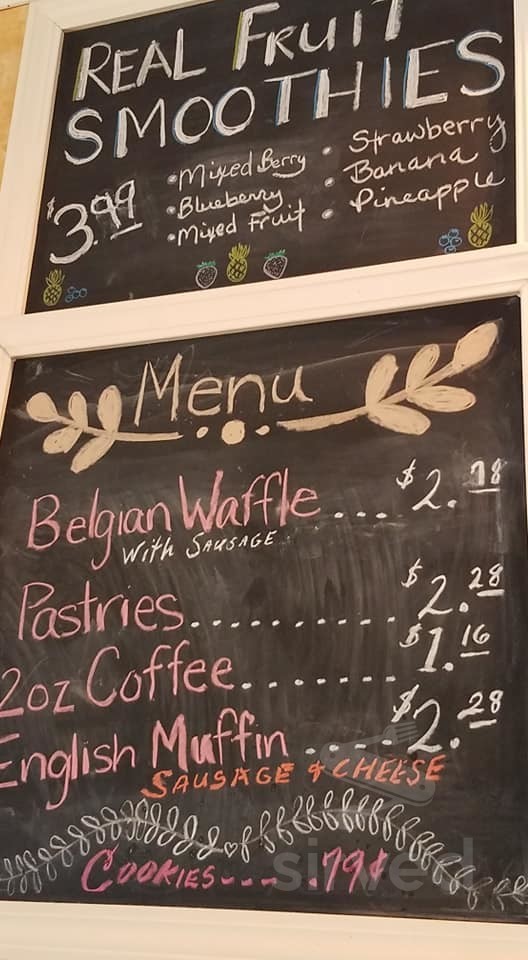 REAL FRUIT
SMOOTHIES
$3.99
• Mixed Berry • Strawberry
• Blueberry • Banana
• Mixed Fruit • Pineapple
Menu
Belgian Waffle .... $2.
With SAUSAGE
Pastries.......... $2.28
2oz Coffee........ $1.16
English Muffin .... $2.28
SAUSAGE & CHEESE
COOKIES---- .79¢
sirved